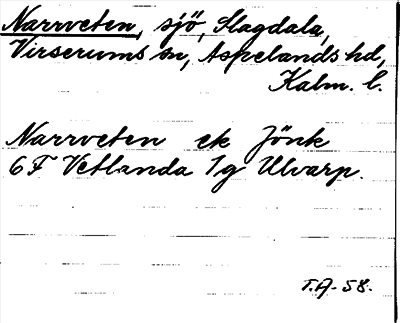 Narrveten, sjö, Slagdala,
Virserums sn, Aspelands hd,
Kalm. l.
Narrveten ek Jönk
6F Vetlanda 1g Ulvarp.
T.A. 58.